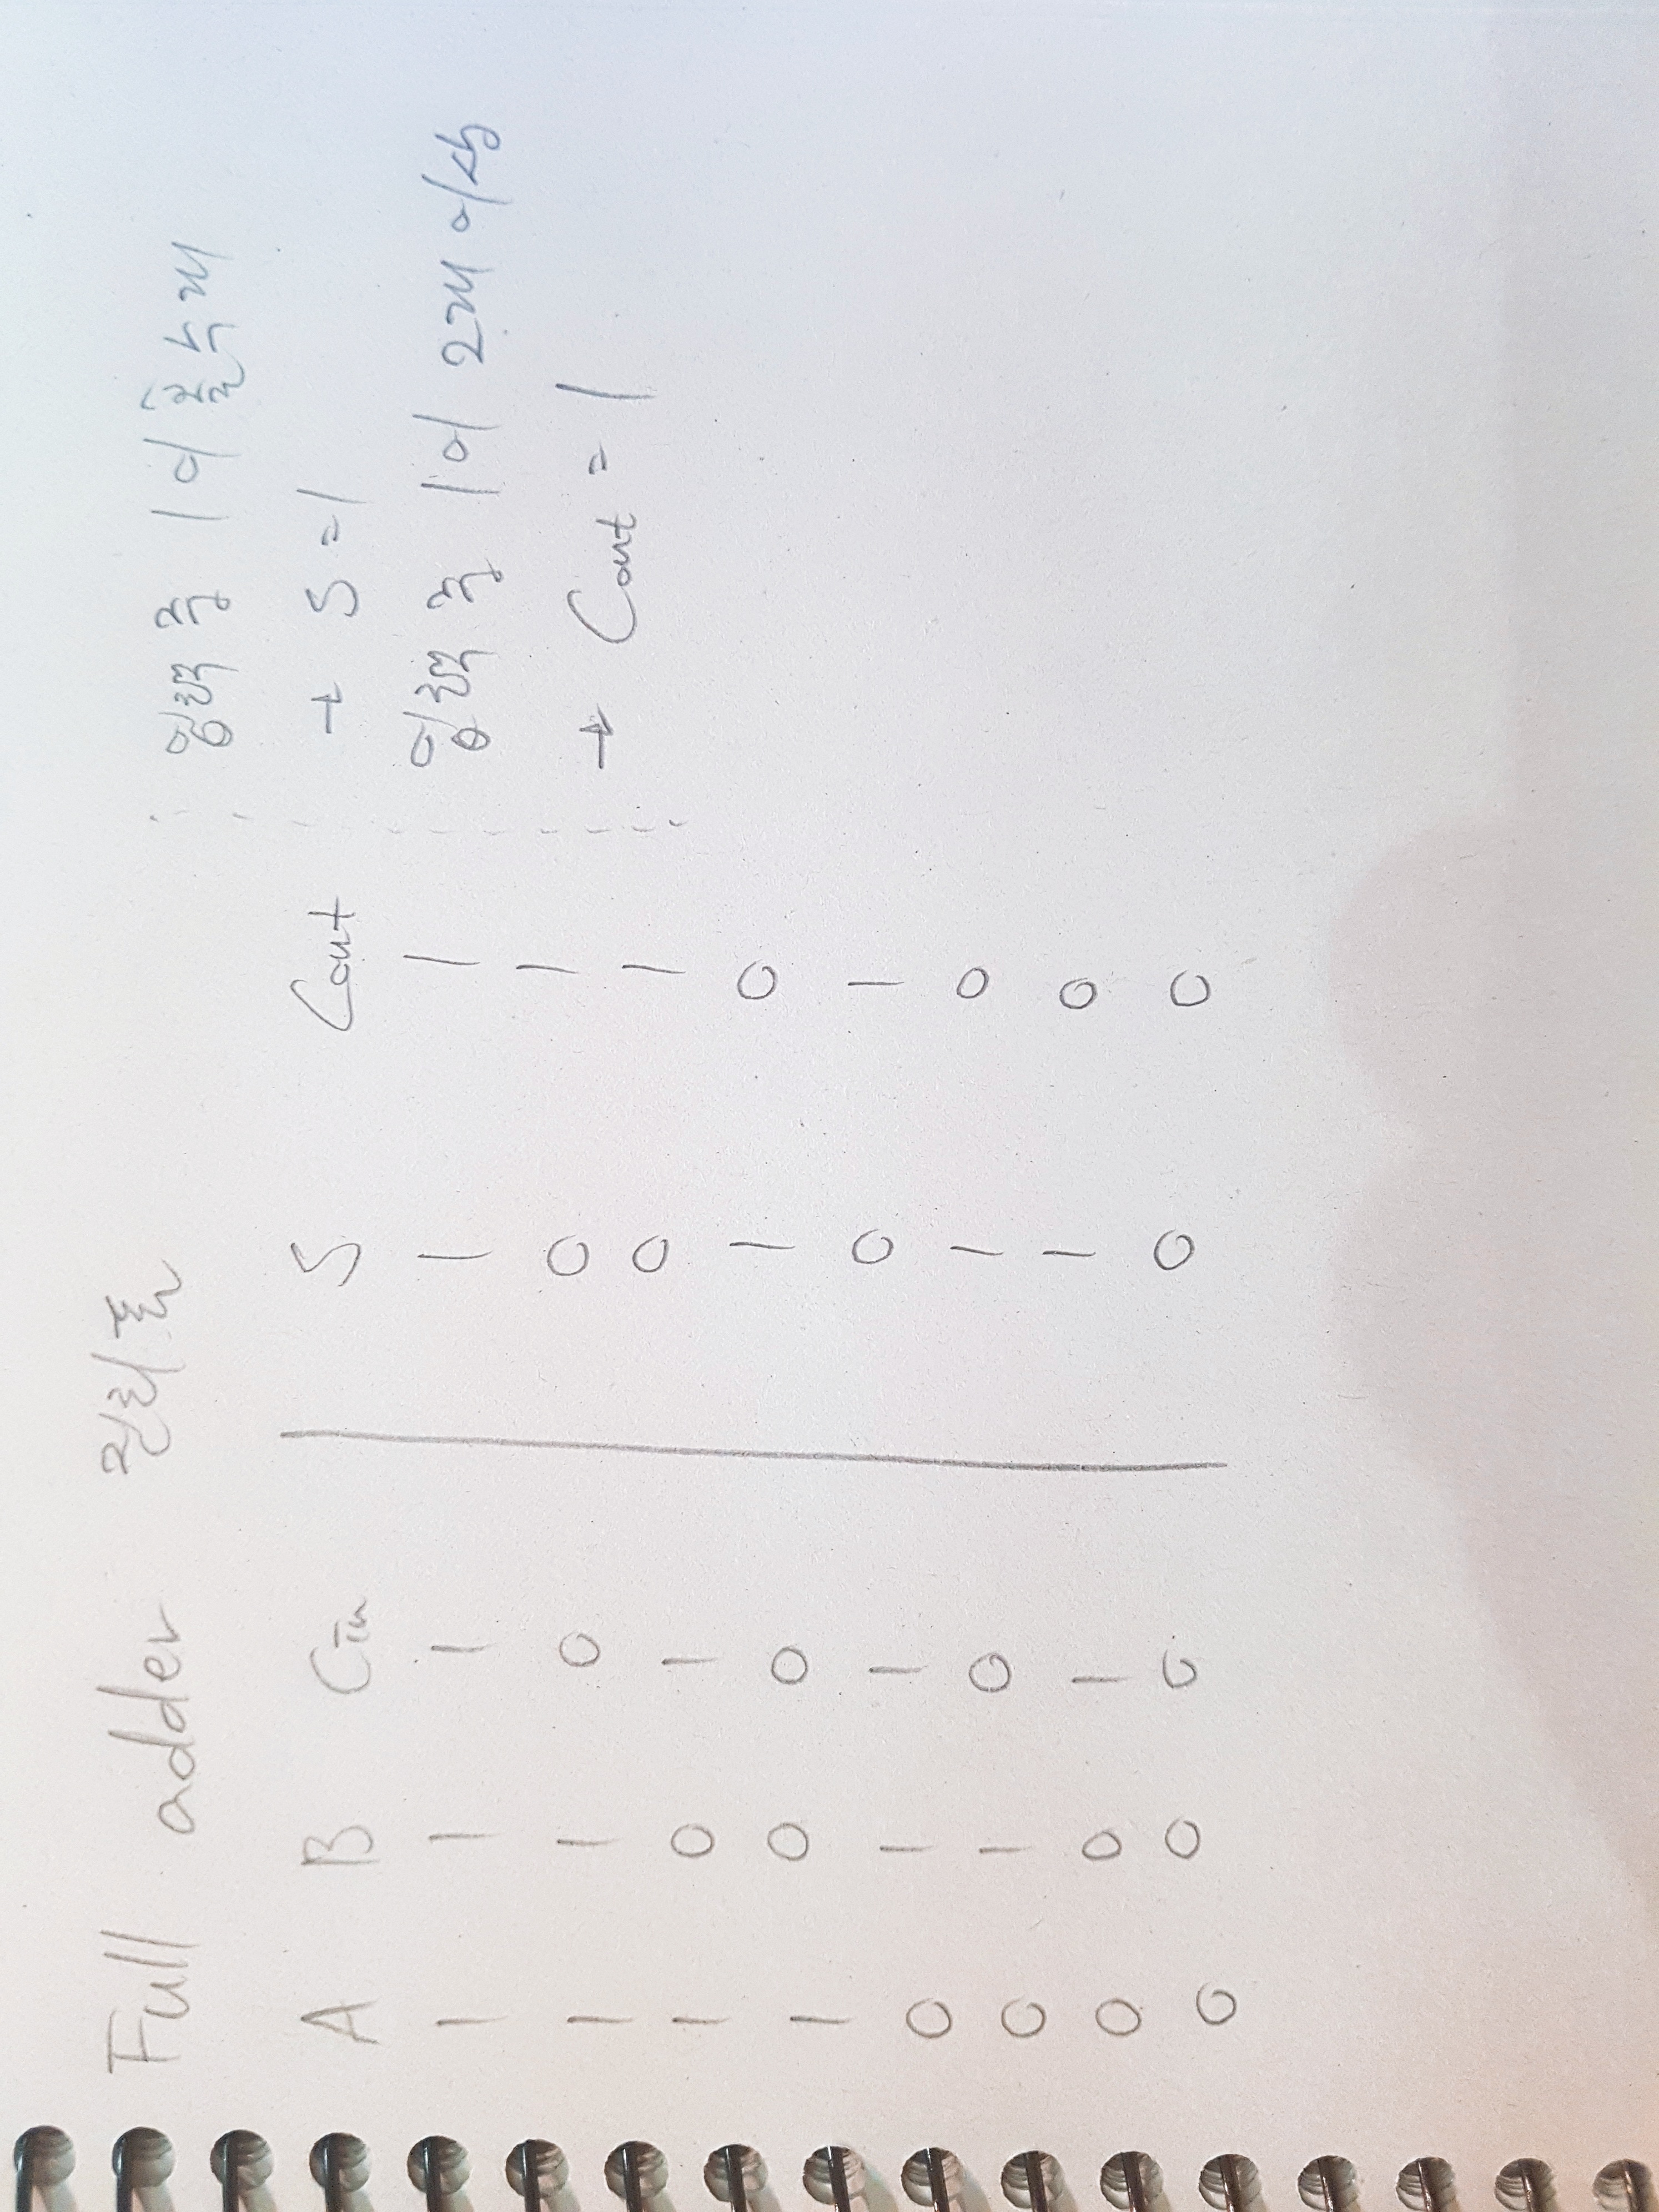 Full adder 진리표
A B Cin S Cout
1 1 1 1 1
1 1 0 0 1
1 0 1 0 1
1 0 0 1 0
0 1 1 0 1
0 1 0 1 0
0 0 1 1 0
0 0 0 0 0
입력 중 1이 홀수개
→ S = 1
입력 중 1이 2개 이상
→ Cout = 1